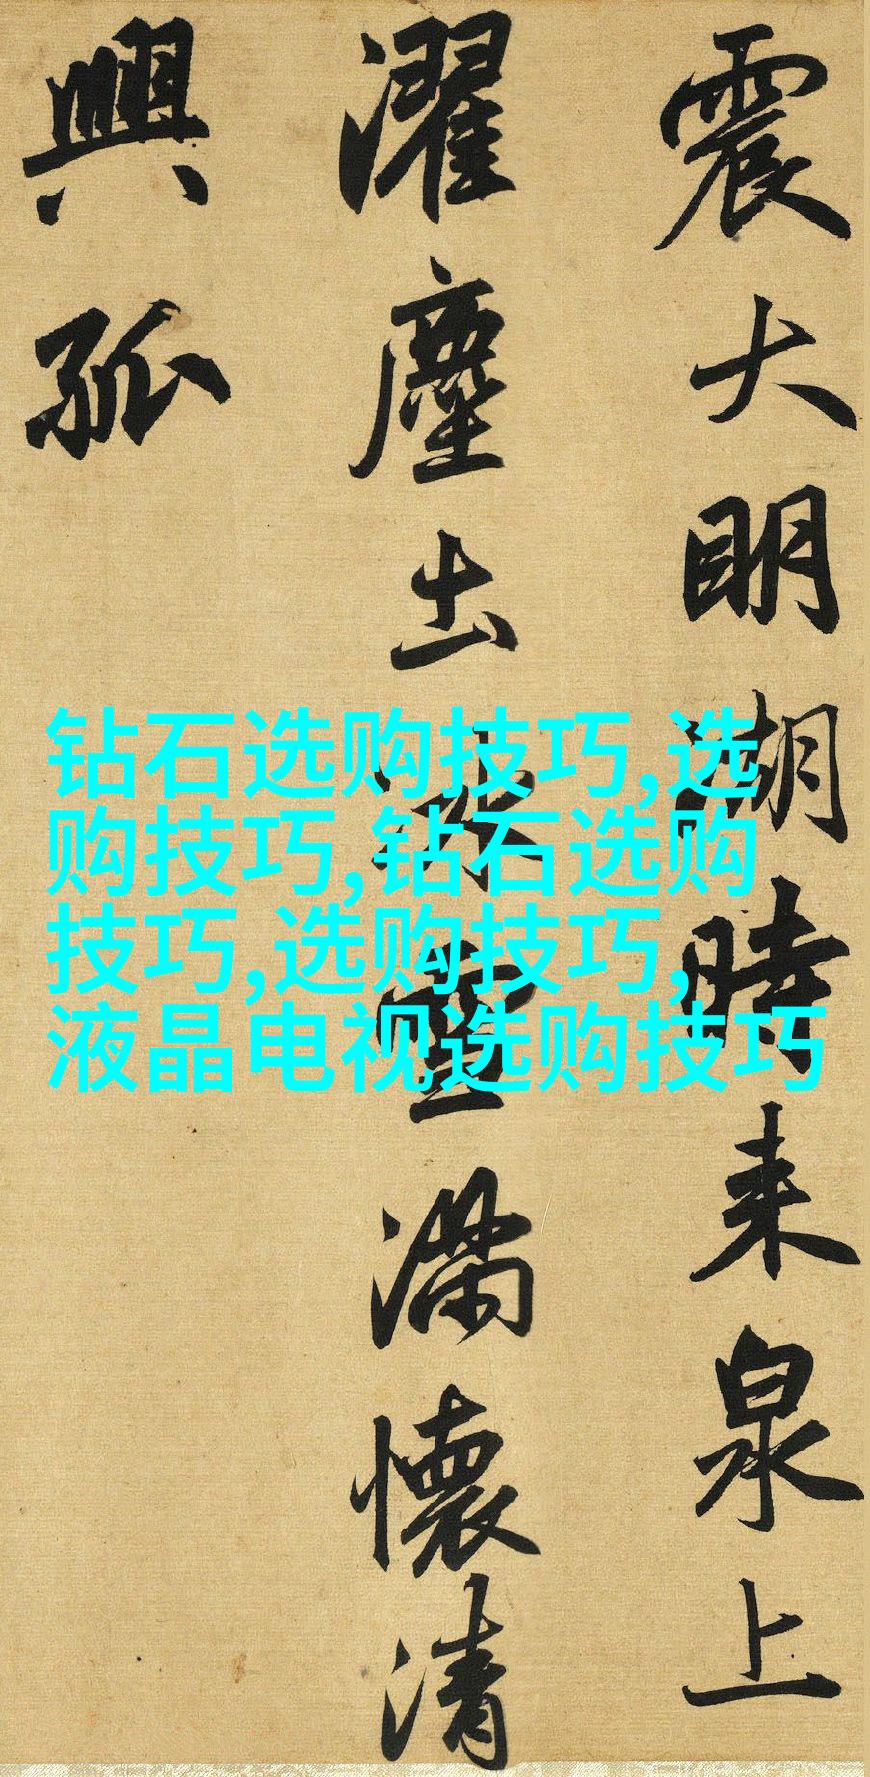 震大明湖時来泉上
濯塵土冰雪滿懷清
興孤
钻石选购技巧,选
购技巧,钻石选购
技巧,选购技巧,
液晶电视选购技巧